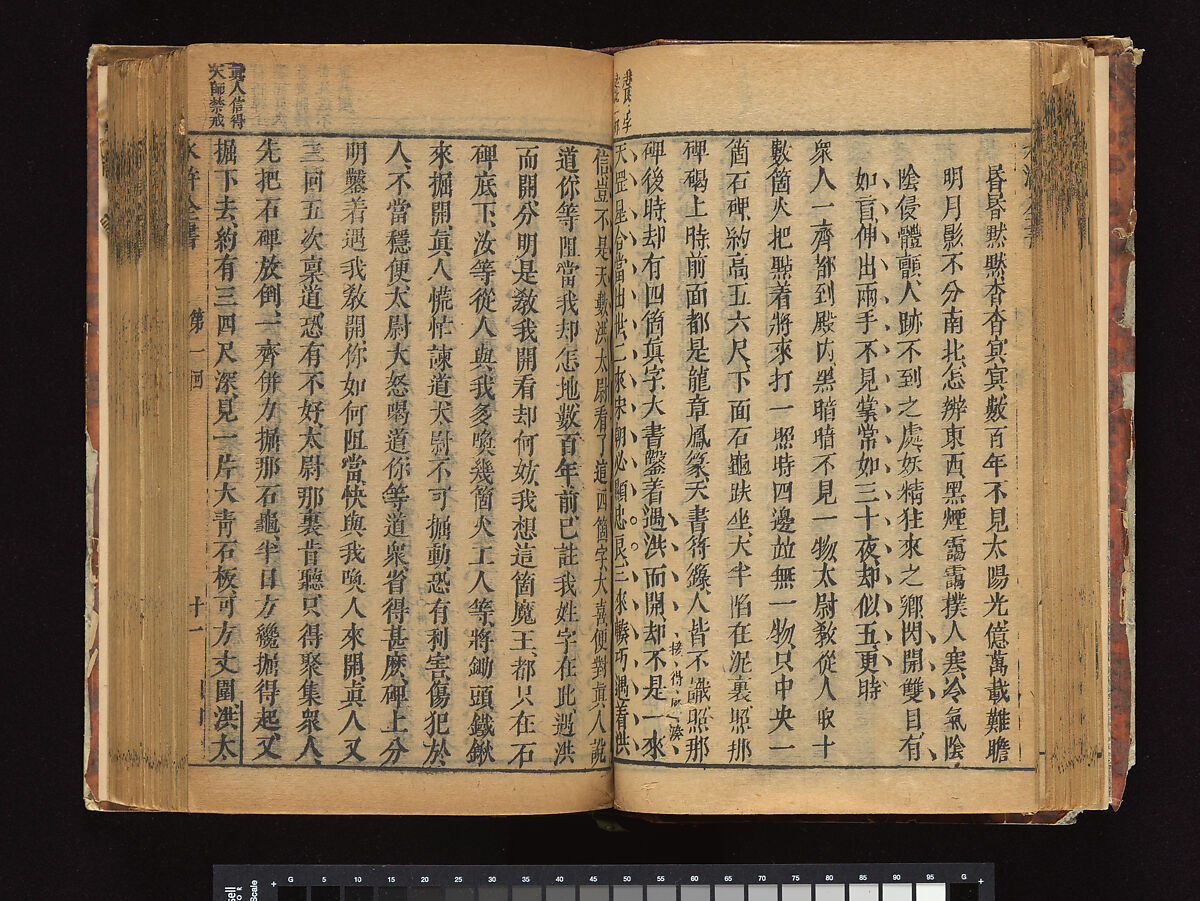 昏昏默默杳杳冥冥數百年不見太陽光億萬載難瞻
明月影不分南北怎辨東西黑煙靄靄撲人寒冷氣陰
陰侵體顫人跡不到之處妖精往來之鄉閃開雙目有
如盲伸出兩手不見掌常如三十夜却似五更時
衆人一齊都到殿內黑暗暗不見一物太尉敎從人取十
數箇火把㸃着將來打一照時四邊並無一物只中央一
箇石碑約高五六尺下面石龜趺坐大半陷在泥裏照那
碑碣上時前面都是龍章鳳篆天書符籙人皆不識照那
碑後時却有四箇眞字大書鑿着遇洪而開却不是一來
天罡星合當出世二來宋朝必顯忠良三來輳巧遇着洪
信豈不是天數洪太尉看了這四箇字大喜便對眞人說
道你等阻當我却怎地數百年前已註我姓字在此遇洪
而開分明是敎我開看却何妨我想這箇魔王都只在石
碑底下汝等從人與我多喚幾箇火工人等將鋤頭鐵鍬
來掘開眞人慌忙諫道太尉不可掘動恐有利害傷犯於
人不當穩便太尉大怒喝道你等道衆省得甚麽碑上分
明鑿着遇我敎開你如何阻當快與我喚人來開眞人又
三回五次稟道恐有不好太尉那裏肯聽只得聚集衆人
先把石碑放倒一齊併力掘那石龜半日方纔掘得起又
掘下去約有三四尺深見一片大靑石板可方丈圍洪太
眞人信得
天師禁戒
水滸全書
第一回
十一